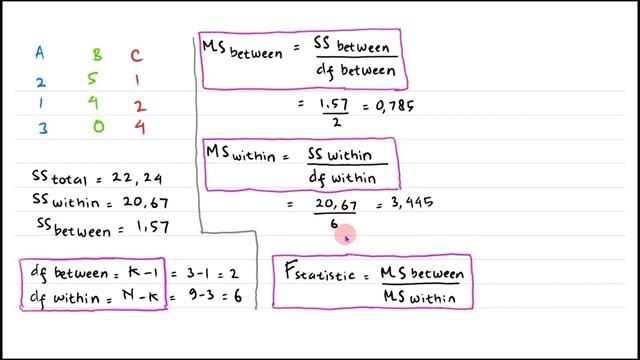 A B C
2 5 1
1 4 2
3 0 4
SS total = 22,24
SS within = 20,67
SS between = 1,57
df between = K-1 = 3-1 = 2
df within = N-K = 9-3 = 6
MS between = SS between / df between
= 1,57 / 2 = 0,785
MS within = SS within / df within
= 20,67 / 6 = 3,445
F statistic = MS between / MS within